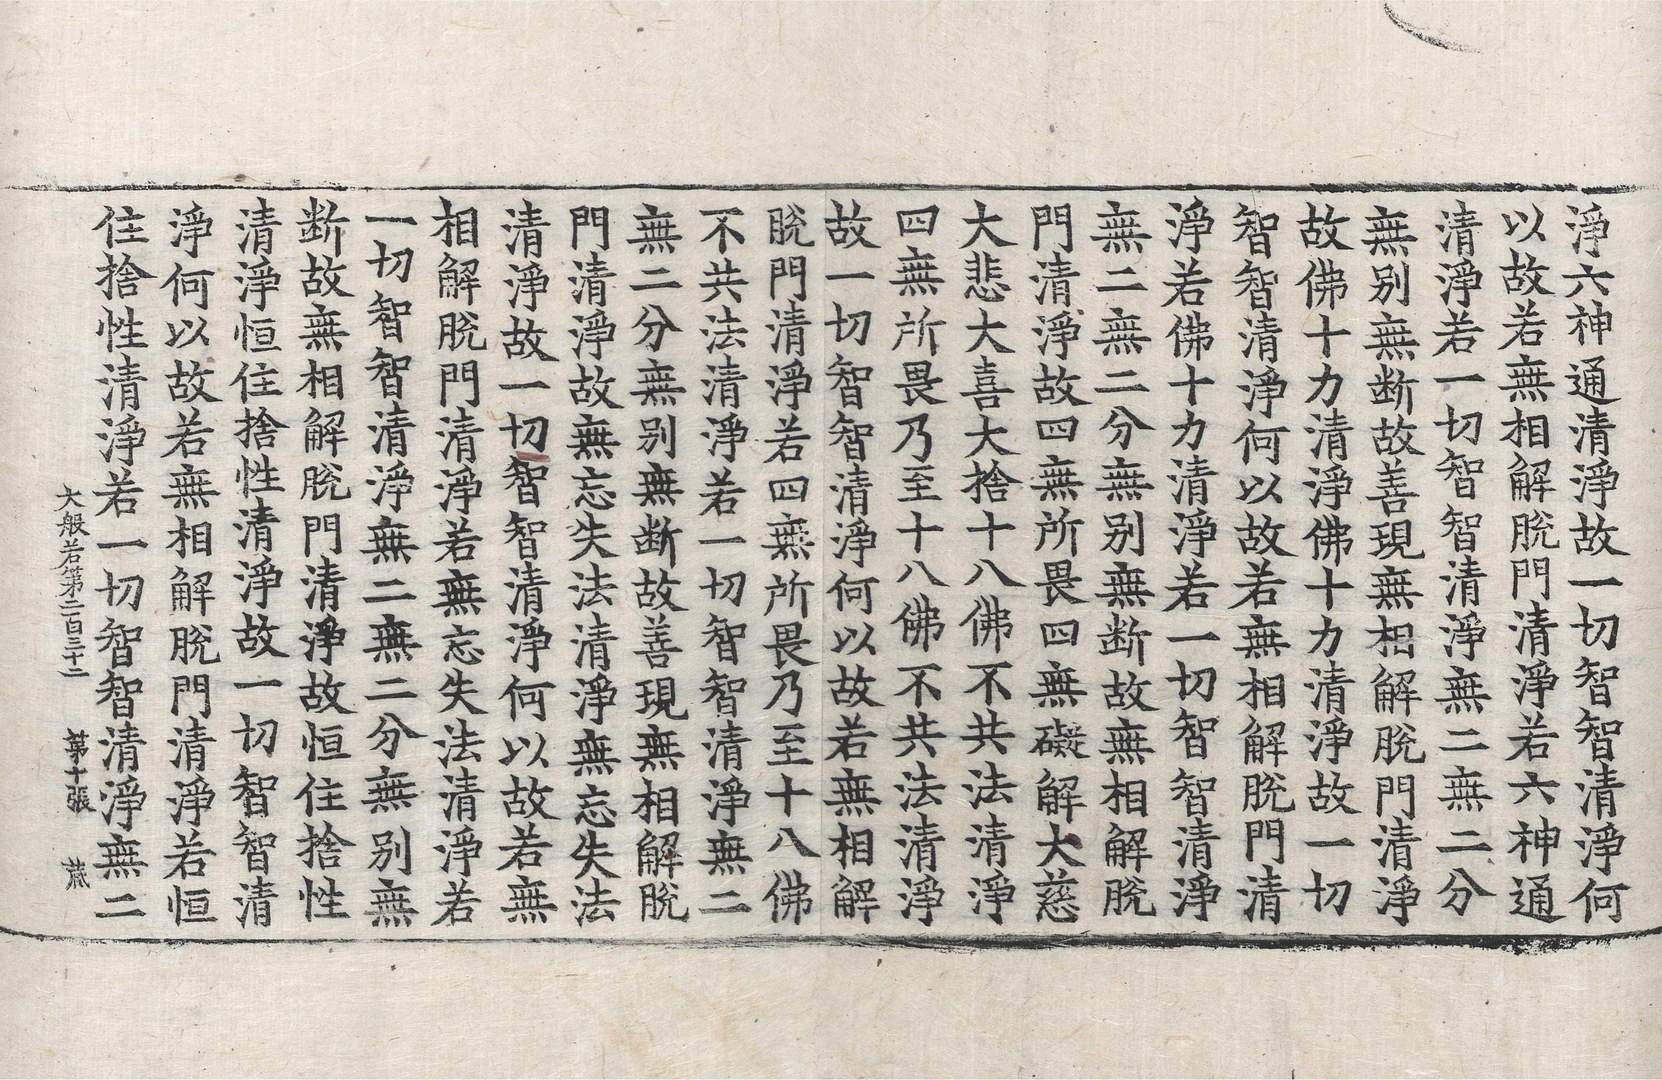 淨六神通清淨故一切智智清淨何
以故若無相解脫門清淨若六神通
清淨若一切智智清淨無二無二分
無別無断故善現無相解脫門清淨
故佛十力清淨佛十力清淨故一切
智智清淨何以故若無相解脫門清
淨若佛十力清淨若一切智智清淨
無二無二分無別無断故無相解脫
門清淨故四無所畏四無礙解大慈
大悲大喜大捨十八佛不共法清淨
四無所畏乃至十八佛不共法清淨
故一切智智清淨何以故若無相解
脫門清淨若四無所畏乃至十八佛
不共法清淨若一切智智清淨無二
無二分無別無断故善現無相解脫
門清淨故無忘失法清淨無忘失法
清淨故一切智智清淨何以故若無
相解脫門清淨若無忘失法清淨若
一切智智清淨無二無二分無別無
断故無相解脫門清淨故恒住捨性
清淨恒住捨性清淨故一切智智清
淨何以故若無相解脫門清淨若恒
住捨性清淨若一切智智清淨無二
大般若第二百三十二 第十張 荿